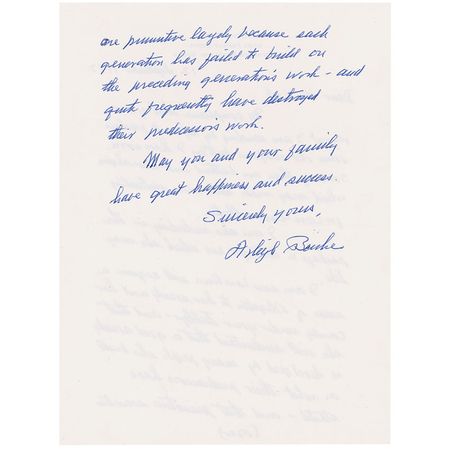 are primitive largely because each
generation has failed to build on
the preceding generation's work – and
quite frequently have destroyed
their predecessor's work.
May you and your family
have great happiness and success.
Sincerely yours,
Arleigh Burke